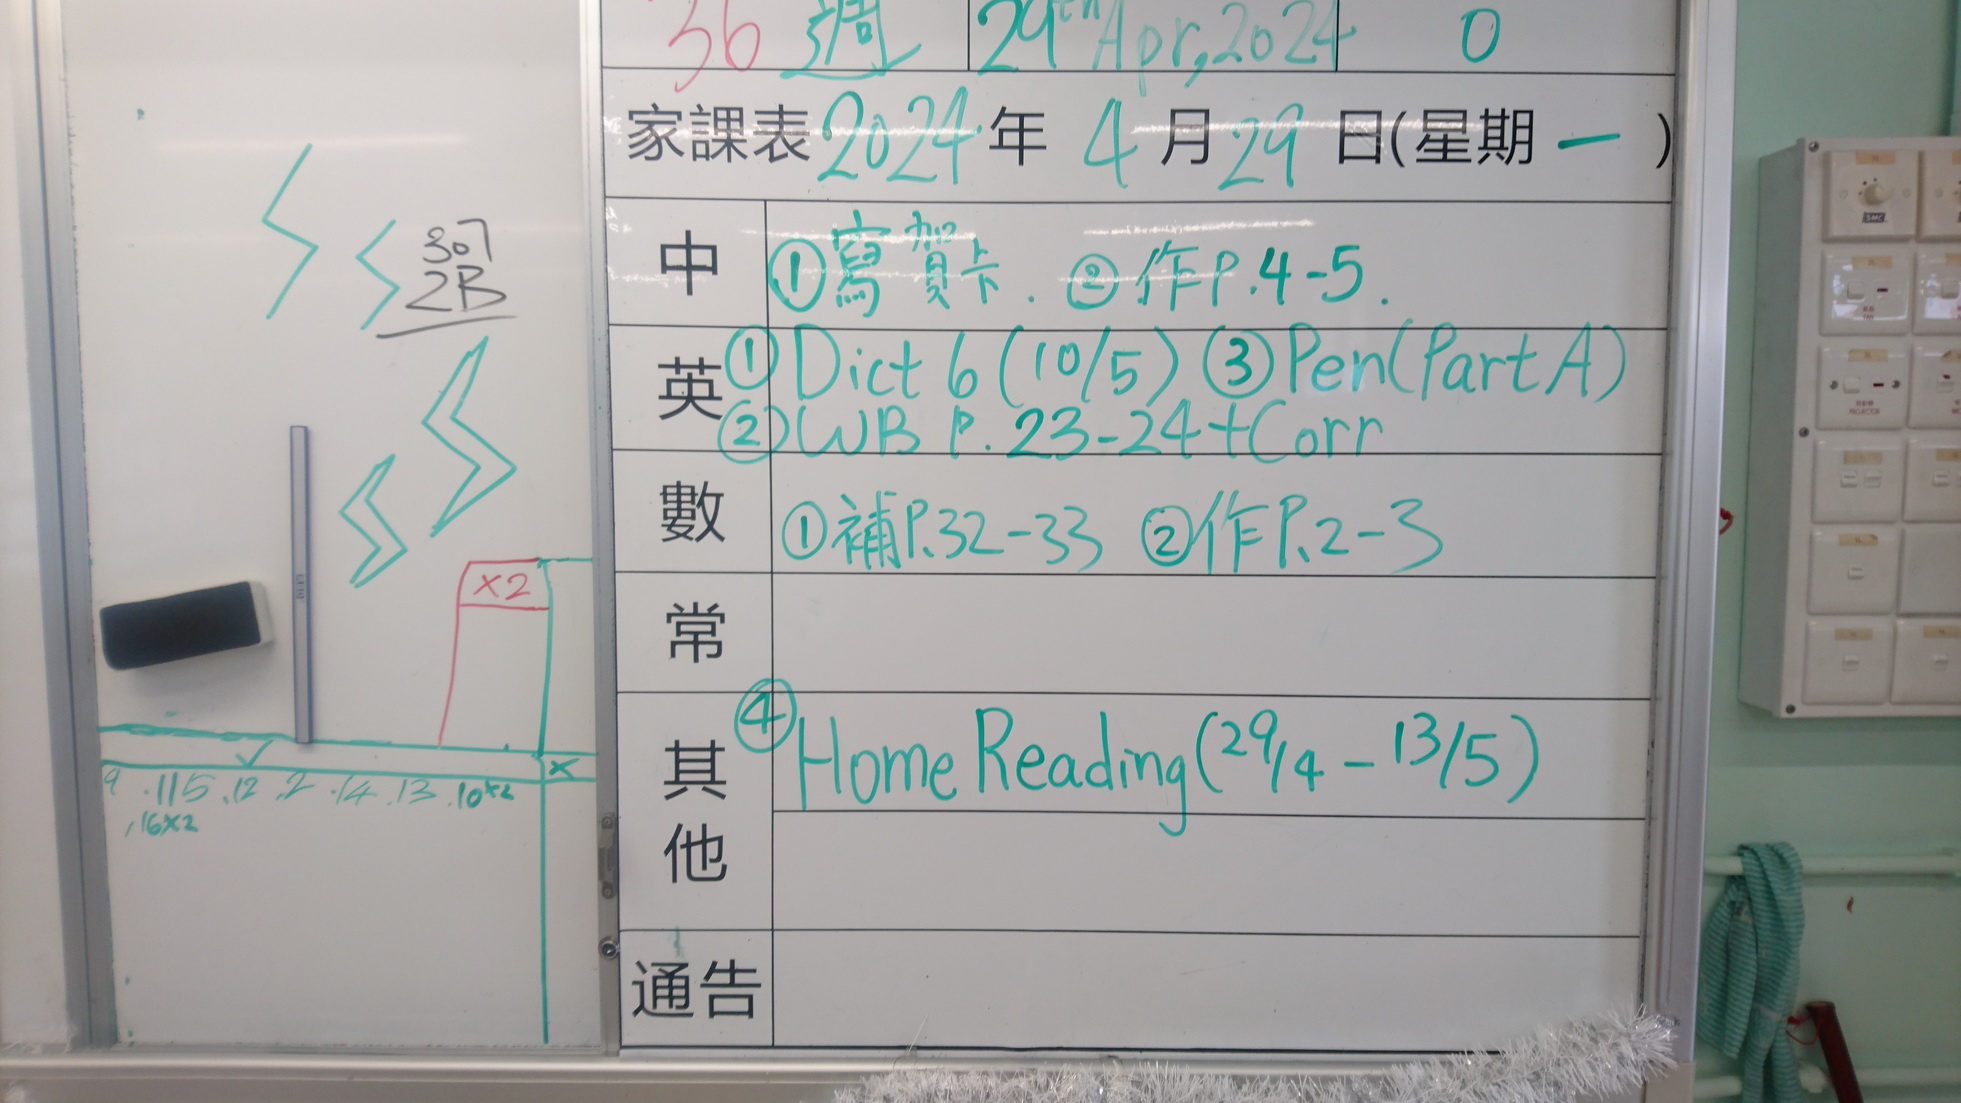 36 週 29th Apr, 2024 0
家課表 2024 年 4 月 29 日(星期 一 )
中 ①寫賀卡. ②作P.4-5.
英 ①Dict 6 (10/5) ③Pen(Part A)
②WB P. 23-24+Corr
數 ①補P.32-33 ②作P.2-3
常
其他 ④Home Reading(29/4 - 13/5)
通告
307
2B
×2
×
9 .115 .12 .2 .14 .13 .10×2
,16×2